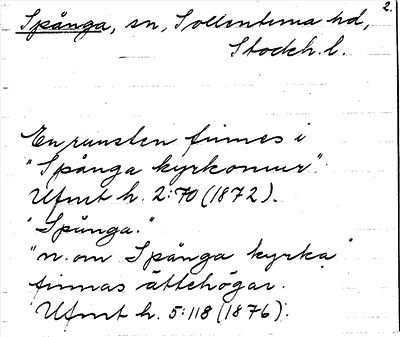 2.
Spånga, sn, Sollentuna hd,
Stockh. l.
En runsten finnes i
"Spånga kyrkomur".
Ufmt h. 2:70 (1872).
"Spånga."
"n. om Spånga kyrka"
finnas ättehögar.
Ufmt h. 5:118 (1876).